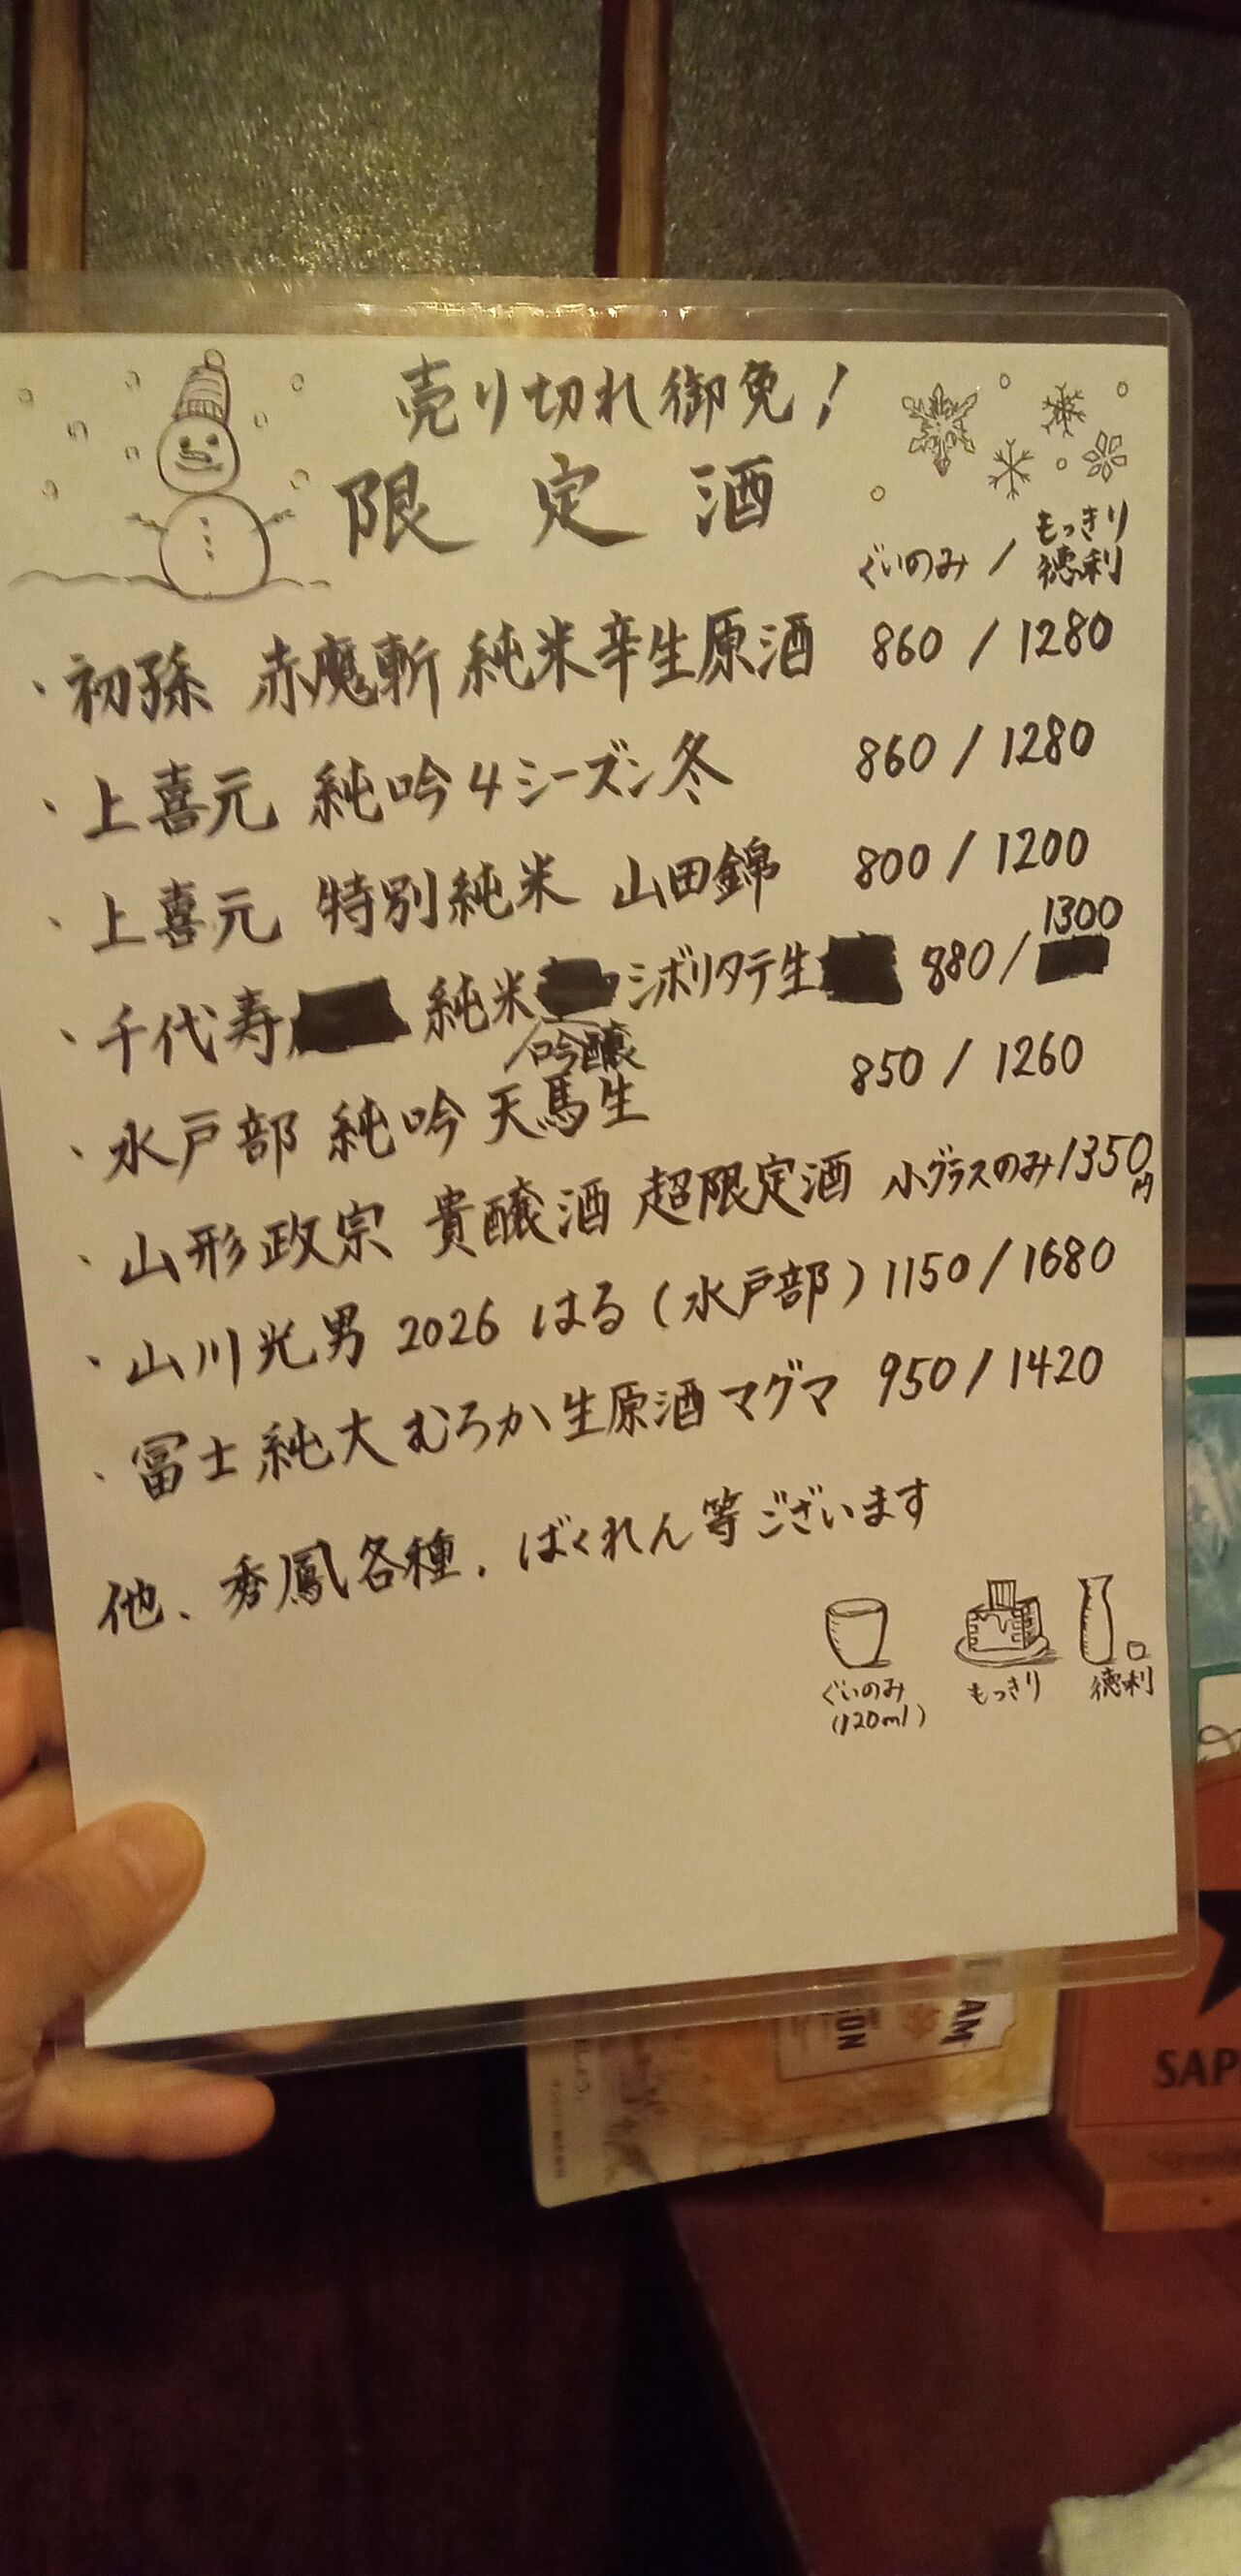 売り切れ御免!
限定酒
ぐいのみ / もっきり 徳利
・初孫 赤魔斬 純米辛生原酒 860 / 1280
・上喜元 純吟4シーズン冬 860 / 1280
・上喜元 特別純米 山田錦 800 / 1200
・千代寿 純米吟醸シボリタテ生 880 / 1300
・水戸部 純吟 天馬生 850 / 1260
・山形政宗 貴醸酒 超限定酒 小グラスのみ1350円
・山川光男 2026 はる(水戸部) 1150 / 1680
・冨士 純大 むろか生原酒マグマ 950 / 1420
他、秀鳳各種、ばくれん等ございます
ぐいのみ (120ml)
もっきり
徳利
SAP